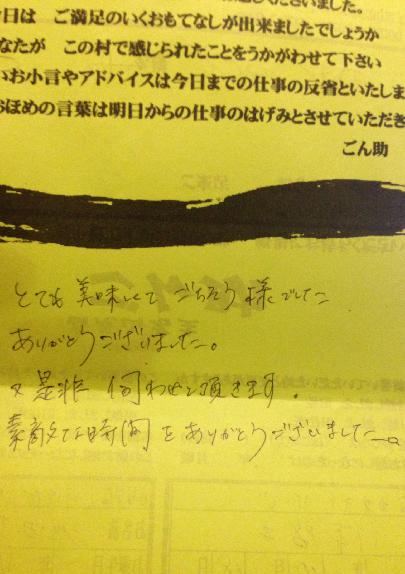 くださいました。
今日は ご満足のいくおもてなしが出来ましたでしょうか
なたが この村で感じられたことをうかがわせて下さい
いお小言やアドバイスは今日までの仕事の反省といたしま
おほめの言葉は明日からの仕事のはげみとさせていただき
ごん助
とても美味しくて ごちそう様でした
ありがとうございました。
又是非 伺わせて頂きます。
素敵な時間をありがとうございました。